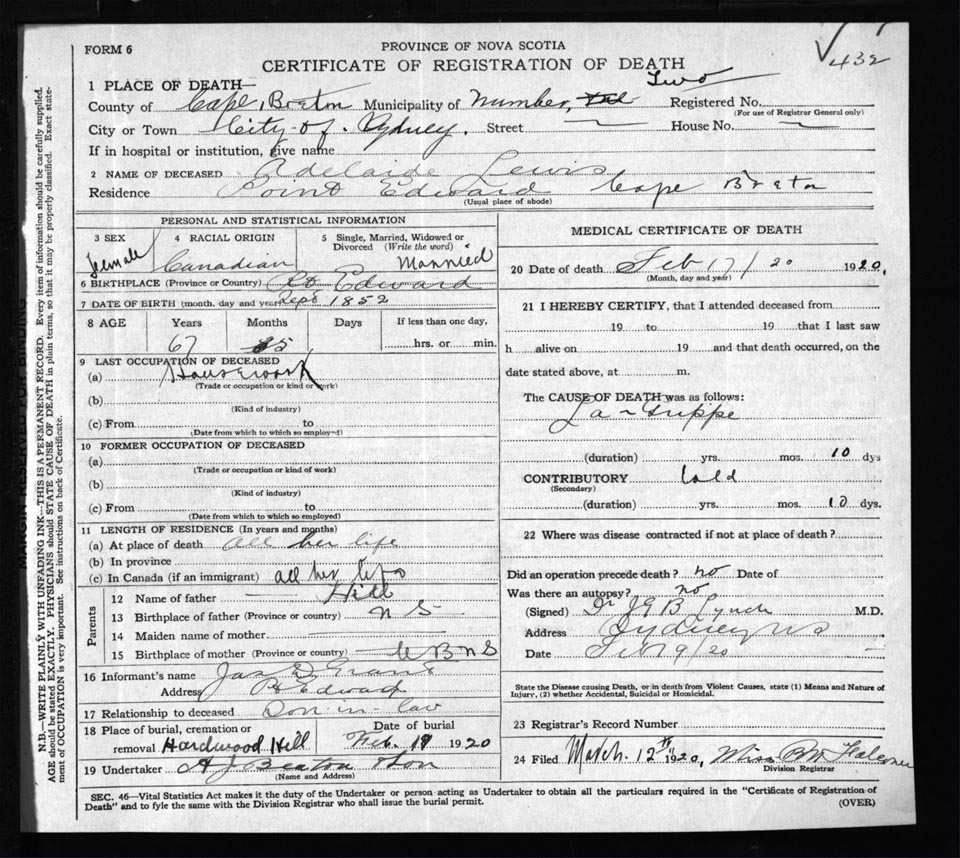 432
FORM 6
PROVINCE OF NOVA SCOTIA
CERTIFICATE OF REGISTRATION OF DEATH
1 PLACE OF DEATH— Two
County of Cape Breton Municipality of Number, Registered No.
(For use of Registrar General only)
City or Town City of Sydney. Street — House No. —
If in hospital or institution, give name
2 NAME OF DECEASED Adelaide Lewis
Residence Point Edward Cape Breton
(Usual place of abode)
PERSONAL AND STATISTICAL INFORMATION
3 SEX 4 RACIAL ORIGIN 5 Single, Married, Widowed or Divorced (Write the word)
Female Canadian Married
6 BIRTHPLACE (Province or Country) Pt Edward
7 DATE OF BIRTH (month, day and year) Sept 1852
8 AGE Years Months Days If less than one day,
67 5 hrs. or min.
9 LAST OCCUPATION OF DECEASED
(a) Housework
(Trade or occupation or kind of work)
(b)
(Kind of industry)
(c) From to
(Date from which to which so employed)
10 FORMER OCCUPATION OF DECEASED
(a)
(Trade or occupation or kind of work)
(b)
(Kind of industry)
(c) From to
(Date from which to which so employed)
11 LENGTH OF RESIDENCE (In years and months)
(a) At place of death all her life
(b) In province
(c) In Canada (if an immigrant) all her life
Parents
12 Name of father — Hill
13 Birthplace of father (Province or country) N S
14 Maiden name of mother —
15 Birthplace of mother (Province or country) C B N S
16 Informant's name Jas D Grant
Address Pt Edward
17 Relationship to deceased Son in law
18 Place of burial, cremation or Date of burial
removal Hardwood Hill Feb. 19 1920
19 Undertaker A J Beaton & Son
(Name and Address)
MEDICAL CERTIFICATE OF DEATH
20 Date of death Feb 17/20 1920,
(Month, day and year)
21 I HEREBY CERTIFY, that I attended deceased from
19 to 19 that I last saw
h alive on 19 and that death occurred, on the
date stated above, at m.
The CAUSE OF DEATH was as follows:
La Grippe
(duration) yrs. mos. 10 dys
CONTRIBUTORY Cold
(Secondary)
(duration) yrs. mos. 10 dys.
22 Where was disease contracted if not at place of death?
Did an operation precede death? no Date of
Was there an autopsy? no
(Signed) Dr J G B Lynch M.D.
Address Sydney NS
Date Feb 19/20
State the Disease causing Death, or in death from Violent Causes, state (1) Means and Nature of
Injury, (2) whether Accidental, Suicidal or Homicidal.
23 Registrar's Record Number
24 Filed March. 12th 1920, Miss
Division Registrar
SEC. 46—Vital Statistics Act makes it the duty of the Undertaker or person acting as Undertaker to obtain all the particulars required in the "Certificate of Registration of
Death" and to fyle the same with the Division Registrar who shall issue the burial permit. (OVER)
MARGIN RESERVED FOR BINDING
N.B.—WRITE PLAINLY WITH UNFADING INK—THIS IS A PERMANENT RECORD. Every item of information should be carefully supplied.
AGE should be stated EXACTLY. PHYSICIANS should STATE CAUSE OF DEATH in plain terms, so that it may be properly classified. Exact state-
ment of OCCUPATION is very important. See instructions on back of Certificate.